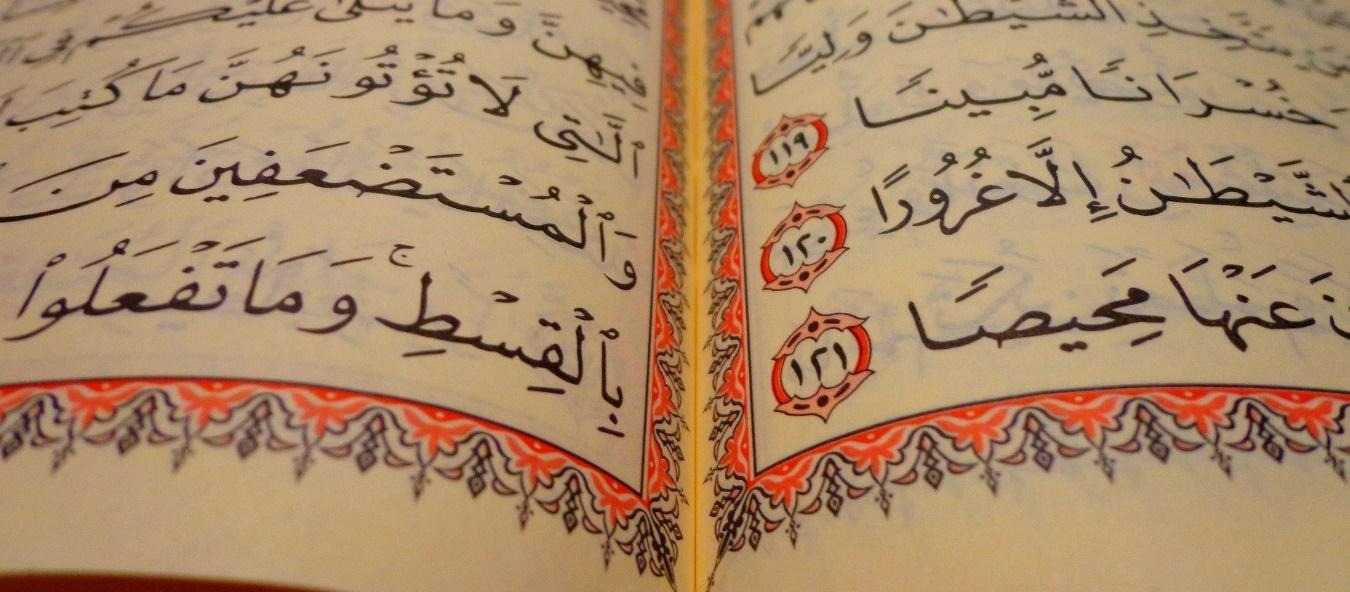 يَتَّخِذِ ٱلشَّيْطَـٰنَ وَلِيًّا
خُسْرَانًا مُّبِينًا ١١٩
ٱلشَّيْطَـٰنُ إِلَّا غُرُورًا ١٢٠
عَنْهَا مَحِيصًا ١٢١
فِيهِنَّ وَمَا يُتْلَىٰ عَلَيْكُمْ فِى
ٱلَّـٰتِى لَا تُؤْتُونَهُنَّ مَا كُتِبَ
وَٱلْمُسْتَضْعَفِينَ مِنَ
بِٱلْقِسْطِ ۚ وَمَا تَفْعَلُوا۟